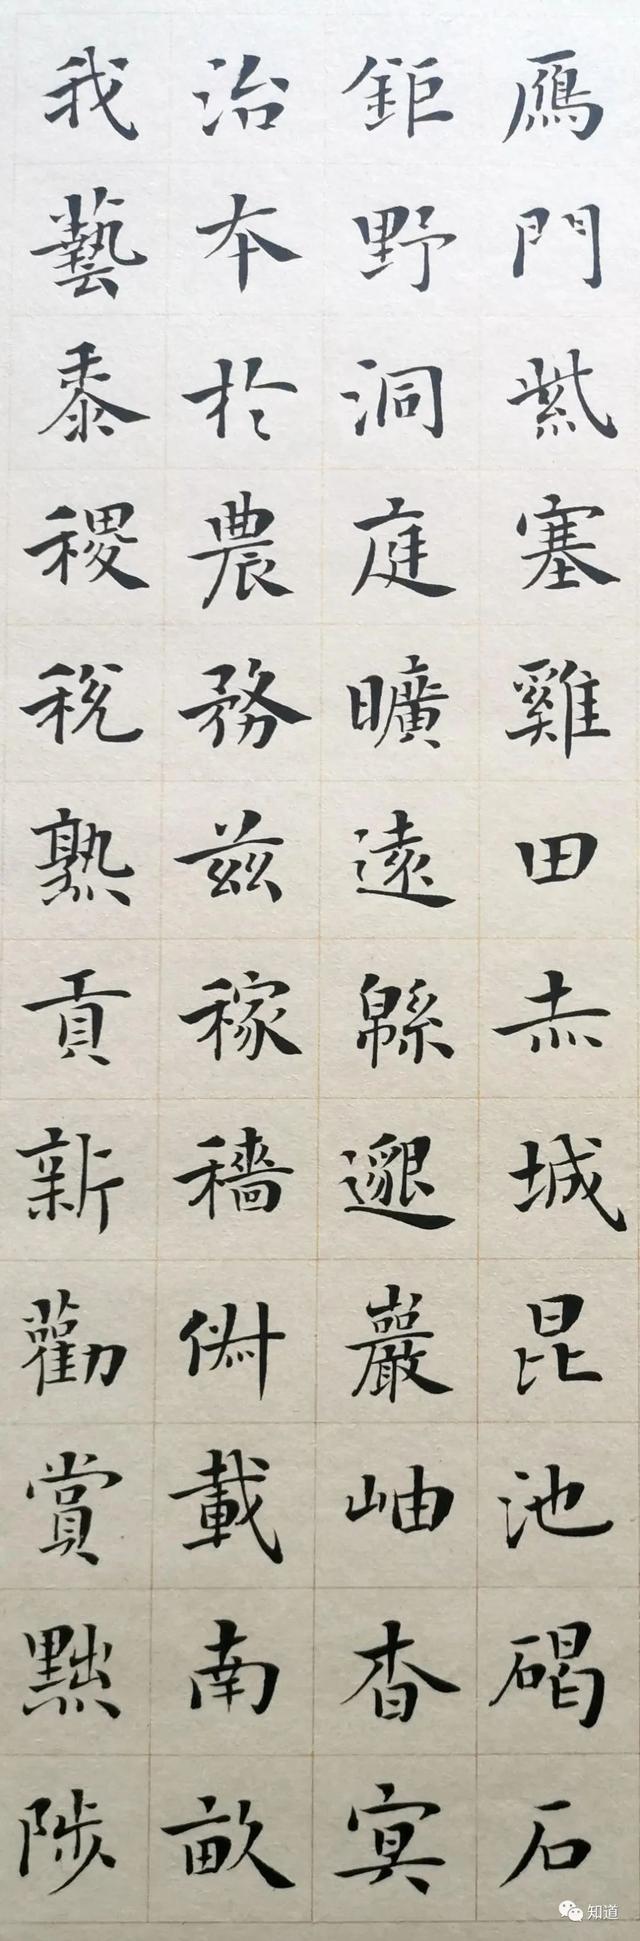 雁門紫塞雞田赤城昆池碣石
鉅野洞庭曠遠緜邈巖岫杳冥
治本於農務茲稼穡俶載南畝
我藝黍稷稅熟貢新勸賞黜陟
知道